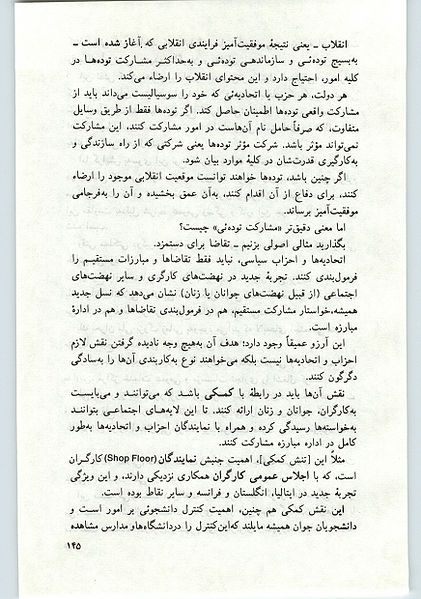 انقلاب ـ یعنی نتیجهٔ موفقیت‌آمیز فرایندی انقلابی که آغاز شده است ـ
به‌بسیج توده‌ئی و سازماندهی توده‌ئی و به‌حداکثر مشارکت توده‌ها در
کلیه امور، احتیاج دارد و این محتوای انقلاب را ارضاء می‌کند.
هر دولت، هر حزب یا اتحادیه‌ئی که خود را سوسیالیست می‌داند باید از
مشارکت واقعی توده‌ها اطمینان حاصل کند. اگر توده‌ها فقط از طریق وسایل
متفاوت، که صرفاً حامل نام آن‌هاست در امور مشارکت کنند، این مشارکت
نمی‌تواند مؤثر باشد. شرکت مؤثر توده‌ها یعنی شرکتی که از راه سازندگی و
به‌کارگیری قدرت‌شان در کلیهٔ موارد بیان شود.
اگر چنین باشد، توده‌ها خواهند توانست موقعیت انقلابی موجود را ارضاء
کنند، برای دفاع از آن اقدام کنند، به‌آن عمق بخشیده و آن را به‌فرجامی
موفقیت‌آمیز برساند.
اما معنی دقیق‌تر «مشارکت توده‌ئی» چیست؟
بگذارید مثالی اصولی بزنیم ـ تقاضا برای دستمزد.
اتحادیه‌ها و احزاب سیاسی، نباید فقط تقاضاها و مبارزات مستقیـم را
فرمول‌بندی کنند. تجربهٔ جدید در نهضت‌های کارگری و سایر نهضت‌های
اجتماعی (از قبیل نهضت‌های جوانان یا زنان) نشان می‌دهد که نسل جدید
همیشه،خواستار مشارکت مستقیم، هم در فرمول‌بندی تقاضاها و هم در ادارهٔ
مبارزه است.
این آرزو عمیقاً وجود دارد؛ هدف آن به‌هیچ وجه نادیده گرفتن نقش لازم
احزاب و اتحادیه‌ها نیست بلکه می‌خواهند نوع به‌کاربندی آن‌ها را به‌سادگی
دگرگون کنند.
نقش آن‌ها باید در رابطهٔ با کمـکی باشـد که می‌تواننـد و می‌بایسـت
به‌کارگران، جوانان و زنان ارائه کنند. تا این لایه‌های اجتماعـی بتواننـد
به‌خواسته‌ها رسیدگی کرده و همراه با نمایندگان احزاب و اتحادیه‌ها به‌طور
کامل در اداره مبارزه مشارکت کنند.
مثلاً این [تنش کمکی]، اهمیت جنبش نمایندگان (Shop Floor) کارگـران
است، که با اجلاس عمومی کارگران همکاری نزدیکی دارند، و این ویژگی
تجربهٔ جدید در ایتالیا، انگلستان و فرانسه و سایر نقاط بوده است.
این نقش کمکی هم چنین، اهمیت کنترل دانشجوئی بر امور اسـت و
دانشجویان جوان همیشه مایلند که‌این‌کنترل را دردانشگاه‌هاو مدارس مشاهده
۱۴۵